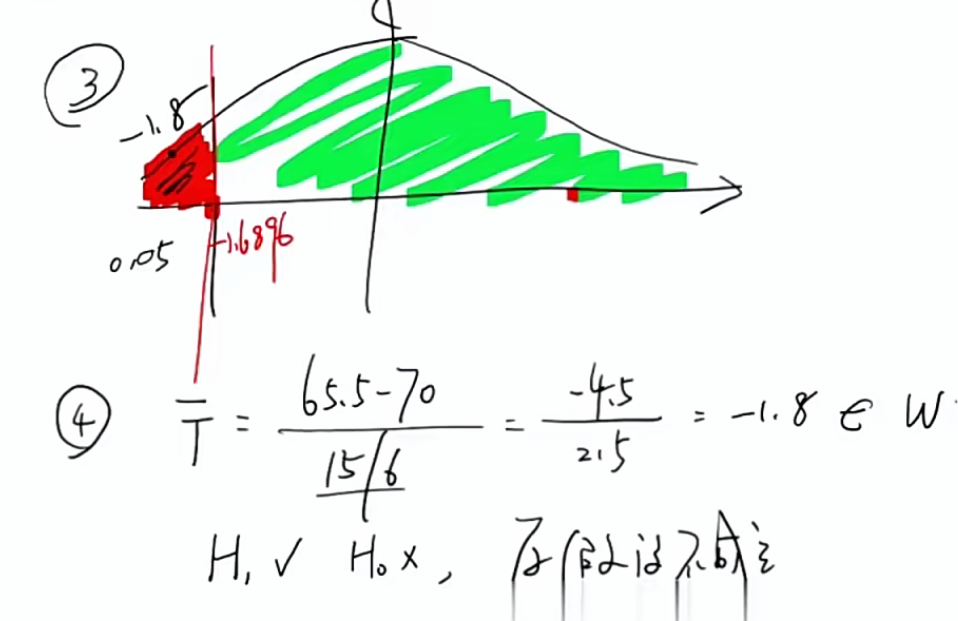 ③
-1.8
-1.6896
0.05
④ T̄ = (65.5-70)/(15/6) = -4.5/2.5 = -1.8 ∈ W
H₁ ✓ H₀ ×, 假设不成立